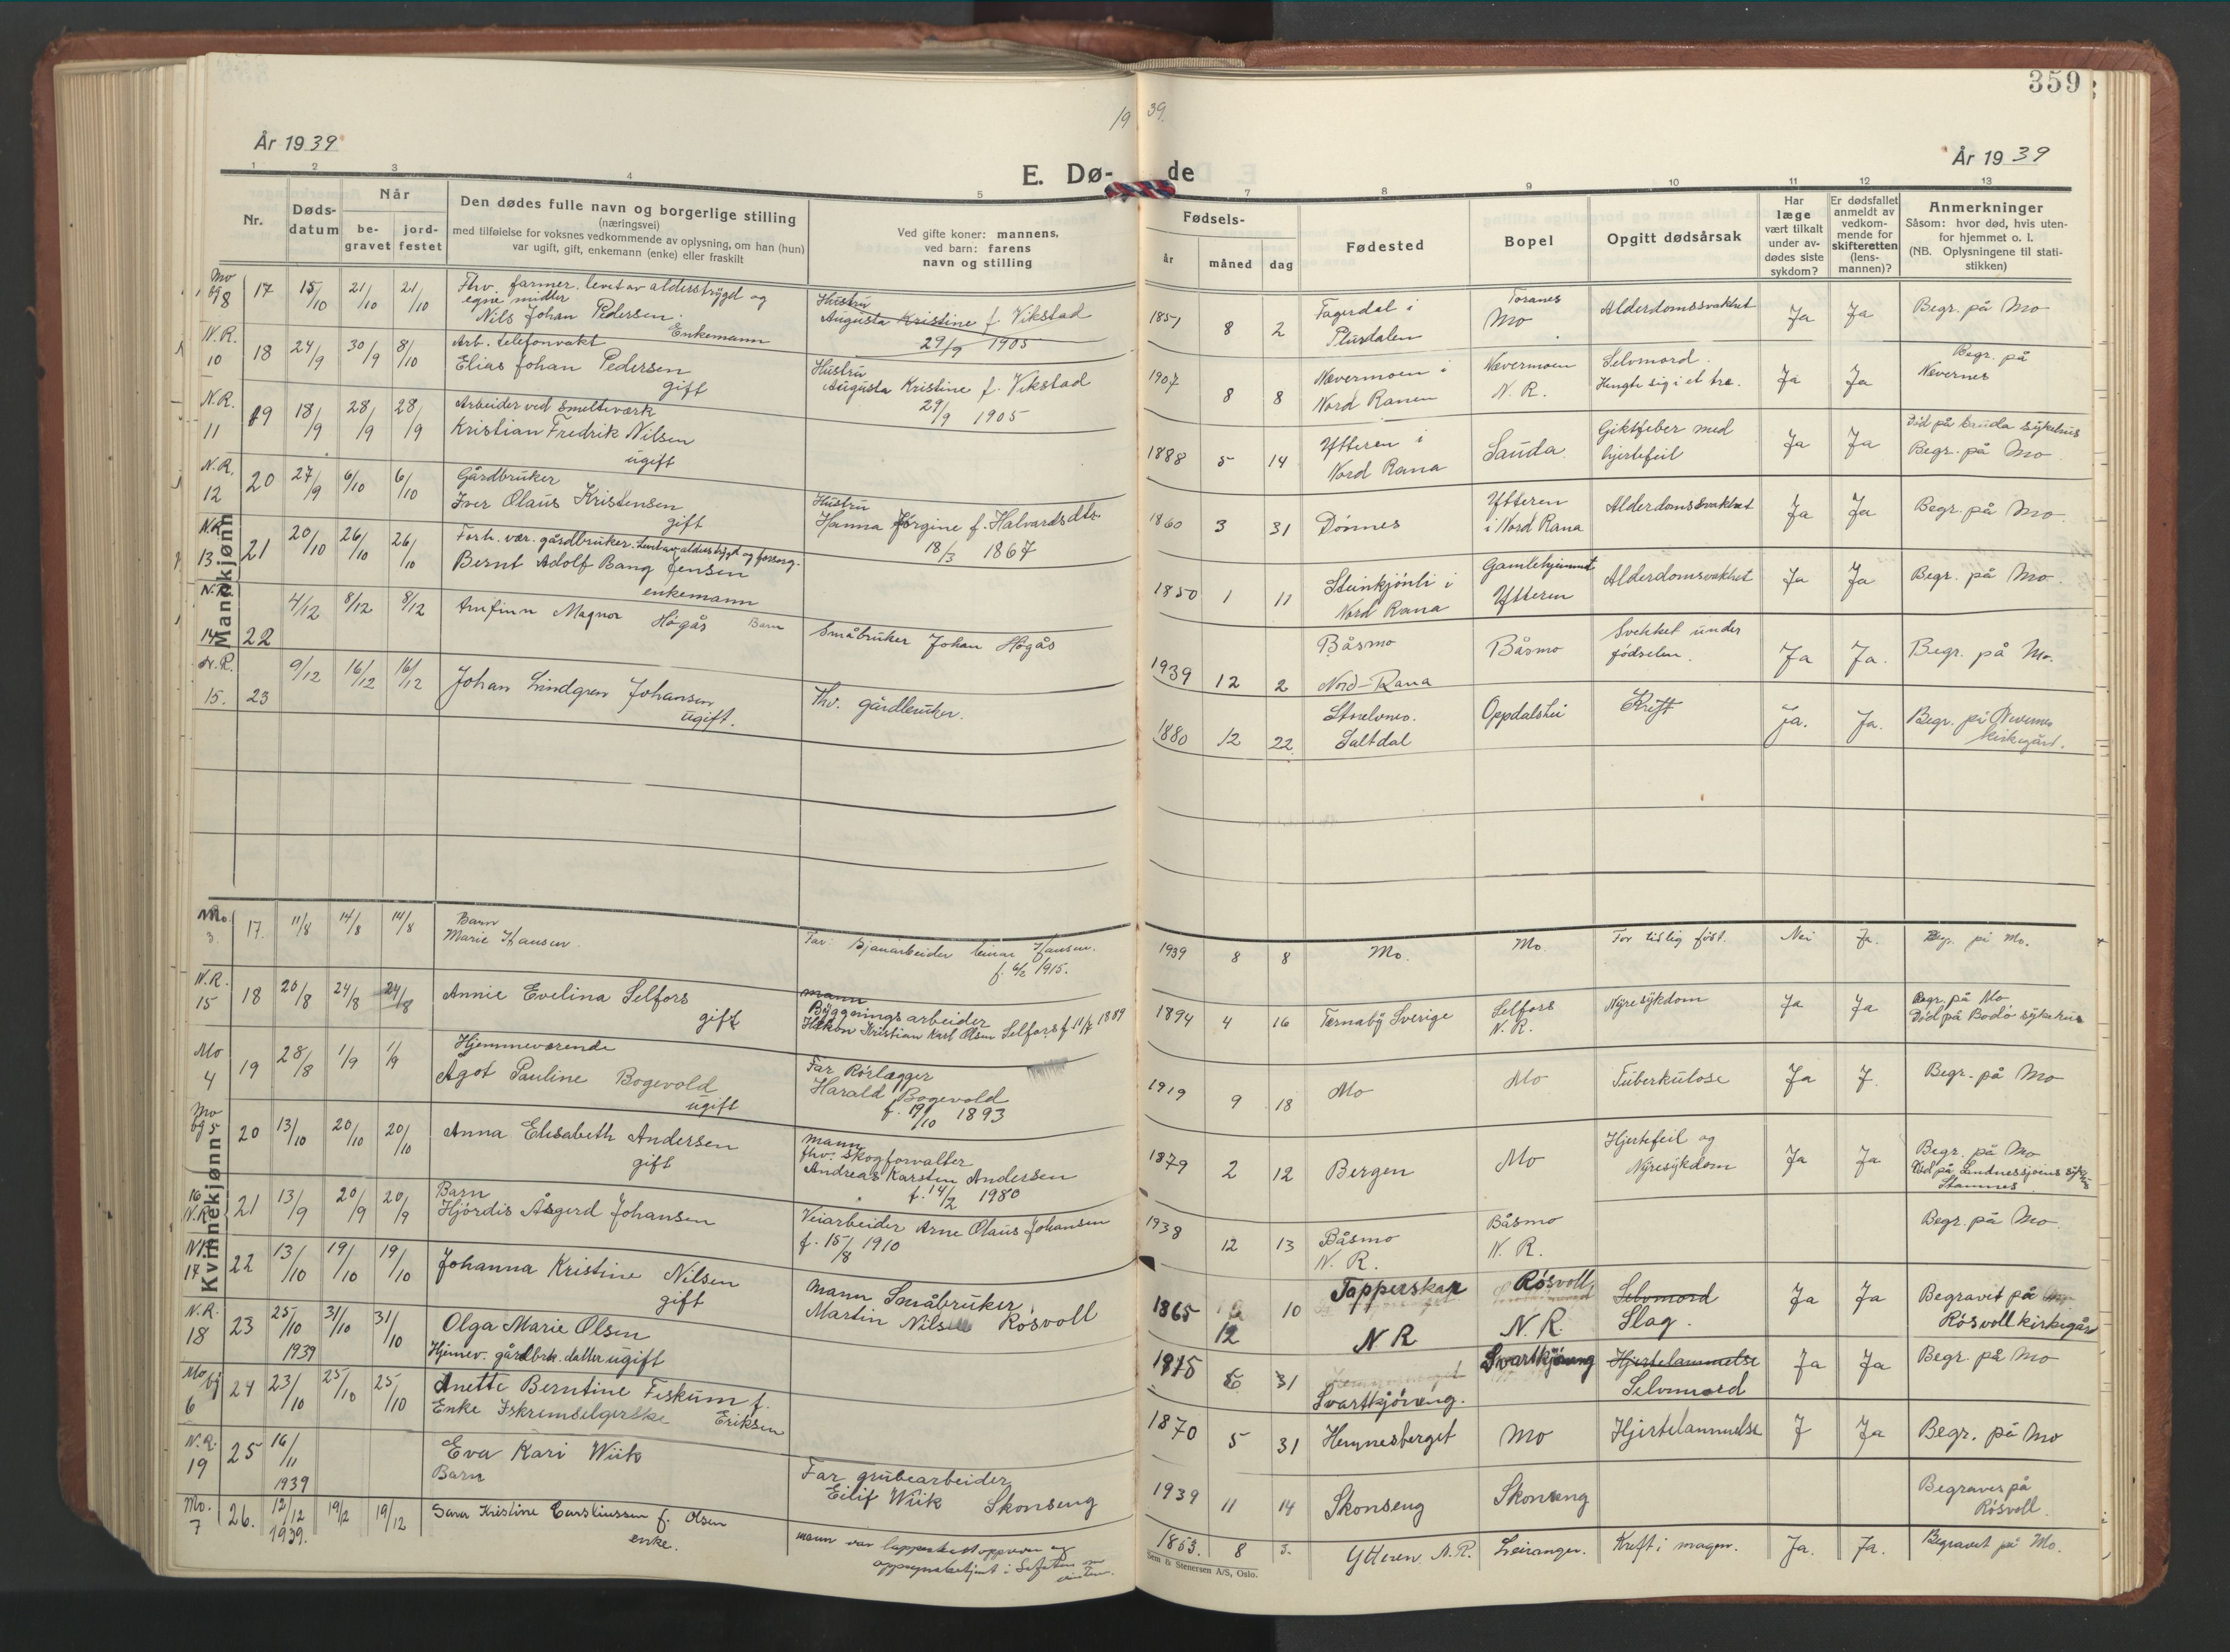 359
19 39.
År 1939
År 1939
E. Dø- de
1 2 3 4 5 7 8 9 10 11 12 13
Nr.
Døds-
datum
Når
be-
gravet
jord-
festet
Den dødes fulle navn og borgerlige stilling
(næringsvei)
med tilføielse for voksnes vedkommende av oplysning, om han (hun)
var ugift, gift, enkemann (enke) eller fraskilt
Ved gifte koner: mannens,
ved barn: farens
navn og stilling
Fødsels-
år måned dag
Fødested
Bopel
Opgitt dødsårsak
Har
læge
vært tilkalt
under av-
dødes siste
sykdom?
Er dødsfallet
anmeldt av
vedkom-
mende for
skifteretten
(lens-
mannen)?
Anmerkninger
Såsom: hvor død, hvis uten-
for hjemmet o. l.
(NB. Oplysningene til stati-
stikken)
Mannkjønn
Mo bg 8 17 15/10 21/10 21/10
Fhv. farmer. levet av alderstrygd og
egne midler
Nils Johan Pedersen.
Enkemann
Hustru
Augusta Kristine f. Vikstad
29/9 1905
1851 8 2
Fagerdal i
Plurdalen
Toranes
Mo
Alderdomssvakhet
Ja Ja
Begr. på Mo
N.R. 10 18 24/9 30/9 8/10
Arb. telefonvakt
Elias Johan Pedersen
gift
Hustru
Augusta Kristine f. Vikstad
29/9 1905
1907 8 8
Nævermoen i
Nord Ranen
Nævermoen
N. R.
Selvmord.
Hengte sig i et tre.
Ja Ja
Begr. på
Nævernes
N.R. 11 19 18/9 28/9 28/9
Arbeider ved Smelteværk
Kristian Fredrik Nilsen
ugift
1888 5 14
Ytteren i
Nord Rana
Sauda
Giktfeber med
hjertefeil
Ja Ja
Død på Sauda sykehus
Begr. på Mo
N.R. 12 20 27/9 6/10 6/10
Gårdbruker
Iver Olaus Kristensen
gift
Hustru
Hanna Jørgine f. Halvardsdtr.
18/3 1867
1860 3 31
Dønnes
Ytteren
i Nord Rana
Alderdomssvakhet
Ja Ja
Begr. på Mo
N.R. 13 21 20/10 26/10 26/10
Forh. vær. gårdbruker. Levet av alderstrygd og forsorg.
Bernt Adolf Bang Jensen
enkemann
1850 1 11
Steinkjønli i
Nord Rana
Gamlehjemmet
Ytteren
Alderdomsvakhet
Ja Ja
Begr. på Mo.
N.R. 14 22 4/12 8/12 8/12
Arnfinn Magnor Høgås Barn
Småbruker Johan Høgås
1939 12 2
Båsmo
Nord-Rana
Båsmo
Svekket under
fødselen.
Ja Ja.
Begr. på Mo.
N.R. 15. 23 9/12 16/12 16/12
Johan Lindgren Johansen
ugift.
Fhv. gårdbruker.
1880 12 22.
Saltdal
Oppdalshei
Kreft
Ja. Ja.
Begr. på Nevernes
kirkegård.
Kvinnekjønn
Mo. 3. 17. 11/8 14/8 14/8
Barn
Marie Hansen.
Far: Hansen.
f. 6/2 1915.
1939 8 8
Mo. Mo.
For tidlig født.
Nei Ja.
Begr. på Mo.
N.R. 15 18 20/8 24/8 24/8
Annie Evelina Selfors
gift
mann
Byggeringsarbeider
Håkon Kristian Karl Olsen Selfors f. 11/7 1889
1894 4 16
Tærnaby Sverige
Selfors
N. R.
Nyresykdom
Ja Ja
Begr. på Mo
Død på Bodø sykehus
Mo 4 19 28/8 1/9 1/9
Hjemmeværende
Agot Pauline Bogevold
ugift
Far Rørlægger
Harald Bogevold
f. 19/10 1893
1919 9 18
Mo Mo
Tuberkulose
Ja J.
Begr. på Mo
Mo bg 5 20 13/10 20/10 20/10
Anna Elisabeth Andersen
gift
mann
fhv. skogforvalter
Andreas Karsten Andersen
f. 14/2 1980
1879 2 12
Bergen
Mo
Hjertefeil og
Nyresykdom
Ja Ja
Begr. på Mo
Stamnes
16 N.R. 21 13/9 20/9 20/9
Barn
Hjørdis Åsgerd Johansen
Veiarbeider Arne Olaus Johansen
f. 15/8 1910
1938 12 13
Båsmo
N. R.
Båsmo
N. R.
Begr. på Mo
N.R. 17 22 13/10 19/10 19/10
Johanna Kristine Nilsen
gift
Mann Småbruker
Martin Nilsen Røsvoll
1865 12 10
Tapperskar
N R
Røsvoll
N. R.
Selvmord
Slag.
Ja Ja
Begravet på
Røsvoll kirkegård
N.R. 18 23 25/10 1939 31/10 31/10
Olga Marie Olsen
Hjemev. gårdbrk. datter ugift
1915 6 31
Svartkjønneng.
Svartkjønneng
Hjertelammelse
Selvmord
Ja Ja
Begr. på Mo
Mo bg 6 24 23/10 25/10 25/10
Anette Berntine Fiskum f.
Enke Iskremselgerske Eriksen
1870 5 31
Hemnesberget
Mo
Hjertelammelse
J Ja
Begr. på Mo
N.R. 19 25 16/11 1939
Eva Kari Wiik
Barn
Far grubearbeider
Eilif Wiik Skonseng
1939 11 14
Skonseng
Skonseng
Begraves på
Røsvoll.
Mo. 7 26. 12/12 1939. 19/12 19/12
Sara Kristine f. Olsen
enke.
mann var
1853. 8 3.
Ytteren N.R.
Leiranger.
Kreft i magen.
Ja. Ja.
Begravet på Mo.
Sem & Stenersen A/S, Oslo.